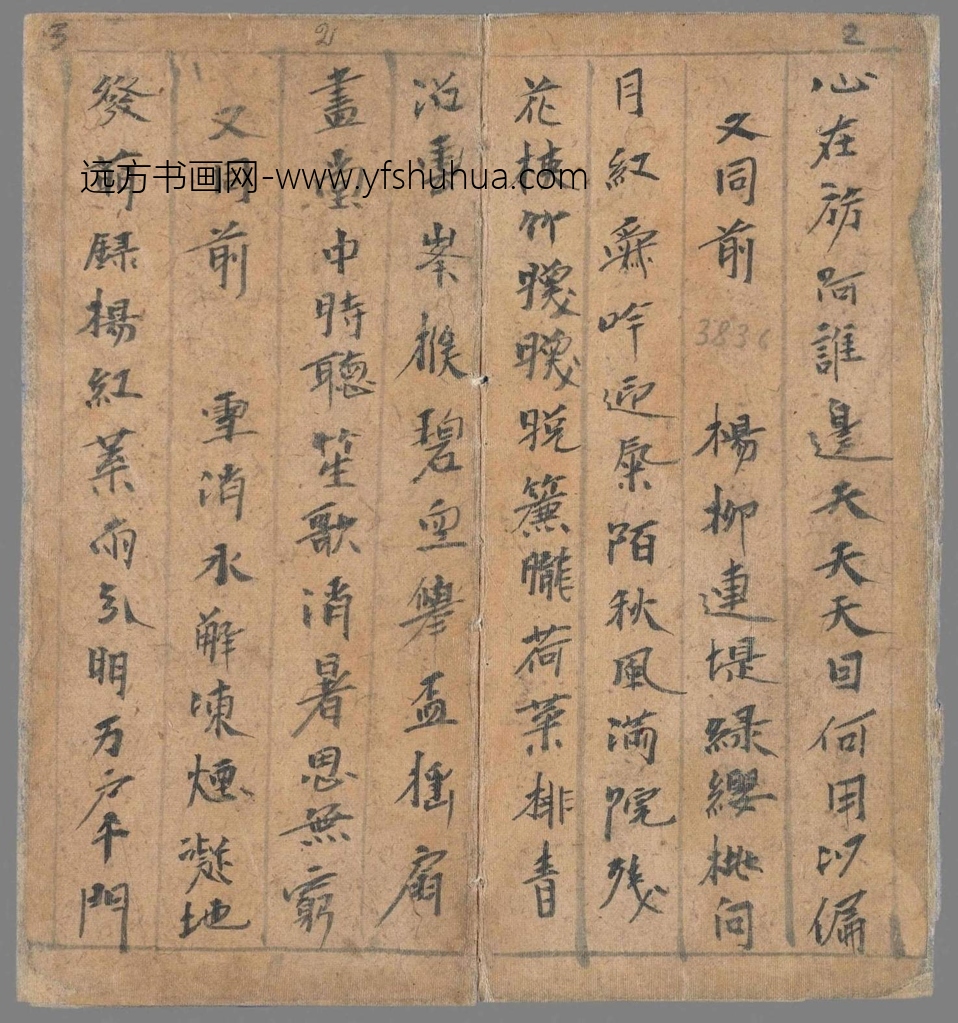 心在於阿誰邊天天天天曰何用以偏
又同前 楊柳連堤綠纓桃向
月紅舜吟迎氣陌秋風滿院殘
花枝竹暖暖晚簾朧荷葉排青
沼 峯猴碧 舉盃搖扇
畫堂中時聽笙歌消暑思無窮
又同前 雪消冰解凍煙凝地
發前綠楊紅葉雨引明万户千門
3
2
2
3836
远方书画网-www.yfshuhua.com